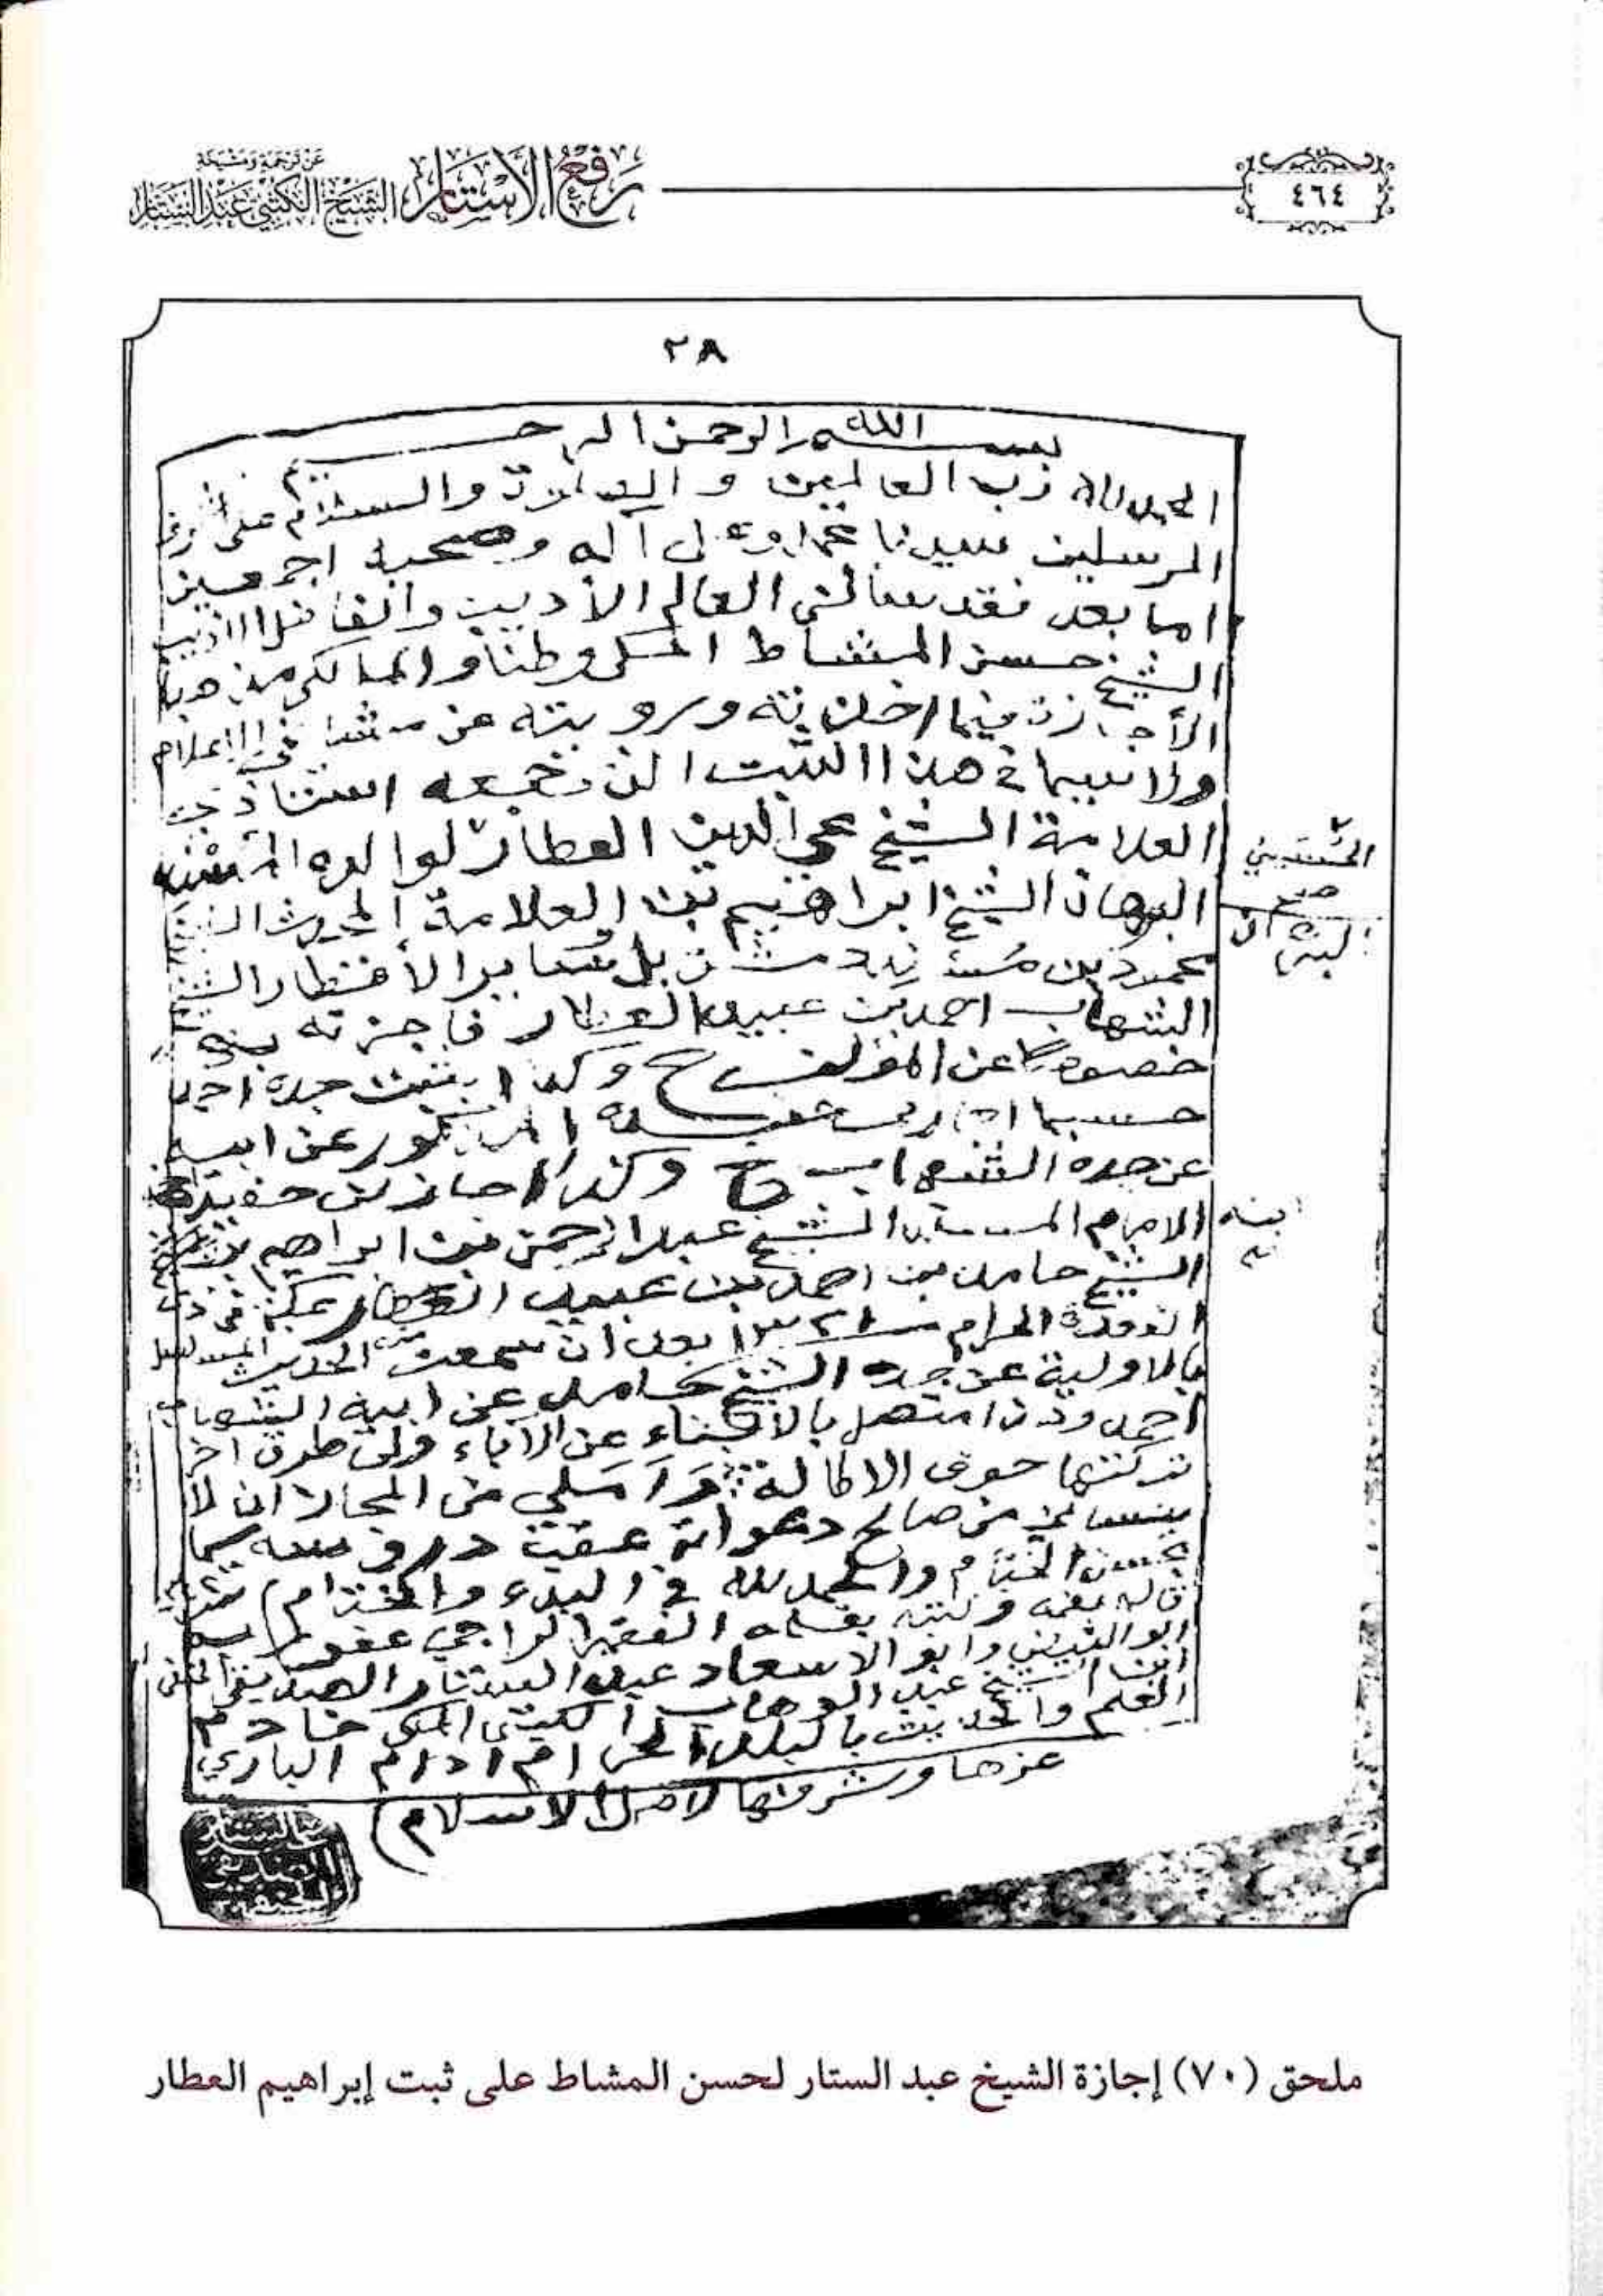 ٤٦٤
رفع الأستار
عن ترجمة ومشيخة
الشيخ الكتبي عبد الستار
٢٨
بسم الله الرحمن الرحيم
الحمد لله رب العالمين والصلاة والسلام على اشرف
المرسلين سيدنا محمد وعلى آله وصحبه اجمعين
اما بعد فقد سالني العالم الأديب والفاضل الاريب
الشيخ حسن المشاط المكي وطنا والمالكي مذهبا
الأجازة فيما اخذته ورويته عن مشايخي الاعلام
ولا سيما في هذا الثبت الذي جمعه استاذي
العلامة الشيخ محي الدين العطار لوالده
البرهان الشيخ ابراهيم بن العلامة المحدث
محمود بن مسند دمشق بل سائر الأقطار الشيخ
الشهاب احمد بن عبيد العطار فاجزته به
خصوصا عن المؤلف ح وكذا بثبت جده احمد
حسبما اجازني حفيده المذكور عن ابيه
عن جده الشهاب ح وكذا اجازني حفيده
الامام المسند الشيخ عبد الرحمن بن ابراهيم
الشيخ حامد بن احمد بن عبيد العطار بمكة في ذي
القعدة الحرام بعد ان سمعت الحديث المسلسل
بالاولية عن جده الشيخ حامد عن ابيه الشهاب
احمد وهذا متصل بالأبناء عن الآباء ولي طرق اخر
تركتها خوف الاطالة وآملي من المجاز ان لا
ينساني من صالح دعواته عقب دروسه
بحسن الختام والحمد لله في البدء والختام
قاله بفمه وكتبه بقلمه الفقير الراجي عفو ربه
ابو الفيض وابو الاسعاد عبد الستار الصديقي الحنفي
ابن الشيخ عبد الوهاب الكتبي المكي خادم
العلم والحديث بالبلد الحرام ادام الباري
عزها وشرفها لاهل الاسلام
ابنه
عبد الستار
الصديقي
الحنفي
ملحق (٧٠) إجازة الشيخ عبد الستار لحسن المشاط على ثبت إبراهيم العطار